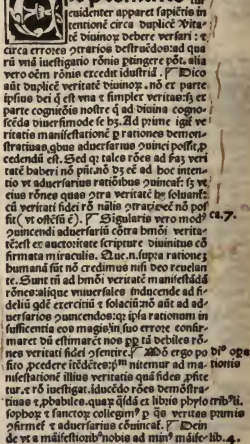 euidenter apparet sapiẽtis in
tentionẽ circa duplicẽ ṽita
tẽ diuinoꝝ debere versari: ⁊
circa errores ꝯtrarios destruẽdos: ad qua
rũ vnã iuestigatio rõnis ꝑtingere põt. alia
vero oẽm rõnis excedit idustriã. ⸿ Dico
aũt duplicẽ veritatẽ diuinoꝝ. nõ ex parte
ipsius dei q̃ est vna ⁊ simplex veritas: sꝫ ex
parte cogĩtõis nostre q̃ ad diuina cogno-
scẽda diuersimode se hꝫ. Ad prime igit̃ ve
ritatis manifestationẽ ꝑ rationes demon-
stratiuas, q̃bus aduersarius ꝯuinci possit, ꝓ
cedendũ est. Sed q̃ tales rões ad ßã veri
tatẽ haberi nõ pñt. nõ dꝫ eẽ ad hoc inten-
tio vt aduersarius ratiõibus ꝯuincat̃: sꝫ vt
eius rõnes quas ꝯtra veritatẽ hꝫ soluant̃:
cũ veritati fidei rõ nalis ꝯtraria eẽ nõ pos
sit (vt ostẽsũ ẽ). ⸿ Sigularis vero modꝰ
ꝯuincendi aduersariũ cõtra hmõi verita-
tẽ: est ex auctoritate scripture diuinitus cõ
firmata miraculis. Que.n. supra rationẽ
humanã sũt nõ credimus nisi deo reuelan
te. Sunt tñ ad hmõi veritatẽ manifestãdã
rõnes: aliq̃ue ṽisimiles inducende ad fi-
deliũ qdẽ exercitiũ ⁊ solaciũ: nõ aũt ad ad-
uersarios ꝯuincendos: q̃ ipsa rationum in
sufficentia eos magis in suo errore confir-
maret dũ estimarẽt nos ꝓp tã debiles rõ-
nes veritati fidei ꝯsentire. ⸿ Mõ ergo po
sito ꝓcedere itẽdẽtes: pᵐ nitemur ad ma-
nifestationẽ illius veritatis quã fides ꝓfite
tur. ⁊ rõ iuestigat. iducẽdo rões demõstra-
tiuas ⁊ ꝓbabiles. quaꝝ q̃sdã ex libris phylo
sophoꝝ ⁊ sanctoꝝ collegimꝰ ꝑ q̃s veritas
ꝯfirmet̃ ⁊ aduersarius cõuincat̃. ⸿ Dein
de vt a mãifestiorib' nobis ad minꝰ mãife-
ca. 7.
diꝰ opa
tionis
tribꝰ li.
primis
lib. 4.